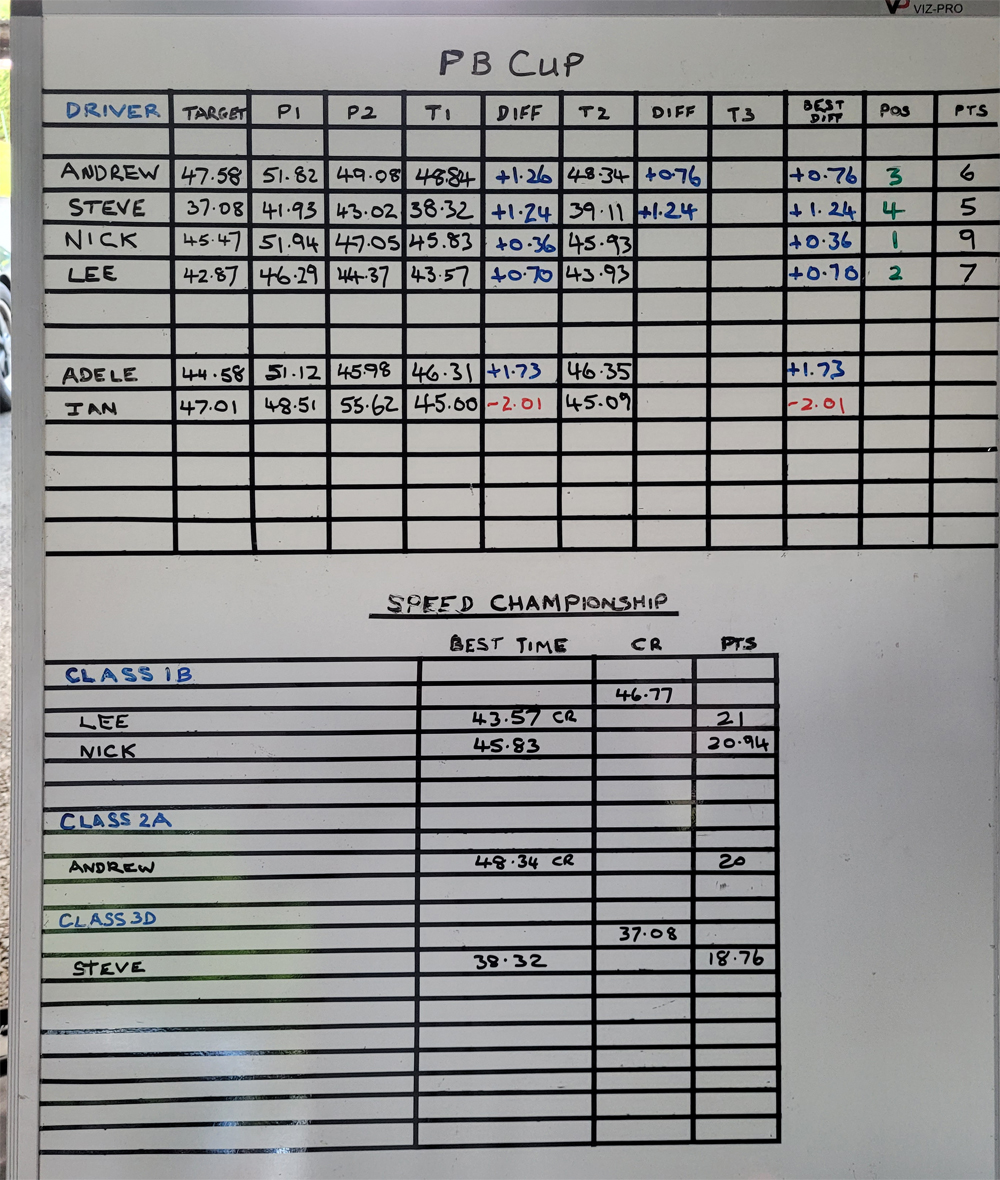 VIZ-PRO
PB CUP
DRIVER TARGET P1 P2 T1 DIFF T2 DIFF T3 BEST DIFF POS PTS
ANDREW 47.58 51.82 49.08 48.84 +1.26 48.34 +0.76 +0.76 3 6
STEVE 37.08 41.93 43.02 38.32 +1.24 39.11 +1.24 +1.24 4 5
NICK 45.47 51.94 47.05 45.83 +0.36 45.93 +0.36 1 9
LEE 42.87 46.29 44.37 43.57 +0.70 43.93 +0.70 2 7
ADELE 44.58 51.12 45.98 46.31 +1.73 46.35 +1.73
IAN 47.01 48.51 55.62 45.00 -2.01 45.09 -2.01
SPEED CHAMPIONSHIP
BEST TIME CR PTS
CLASS 1B
46.77
LEE 43.57 CR 21
NICK 45.83 20.94
CLASS 2A
ANDREW 48.34 CR 20
CLASS 3D
37.08
STEVE 38.32 18.76